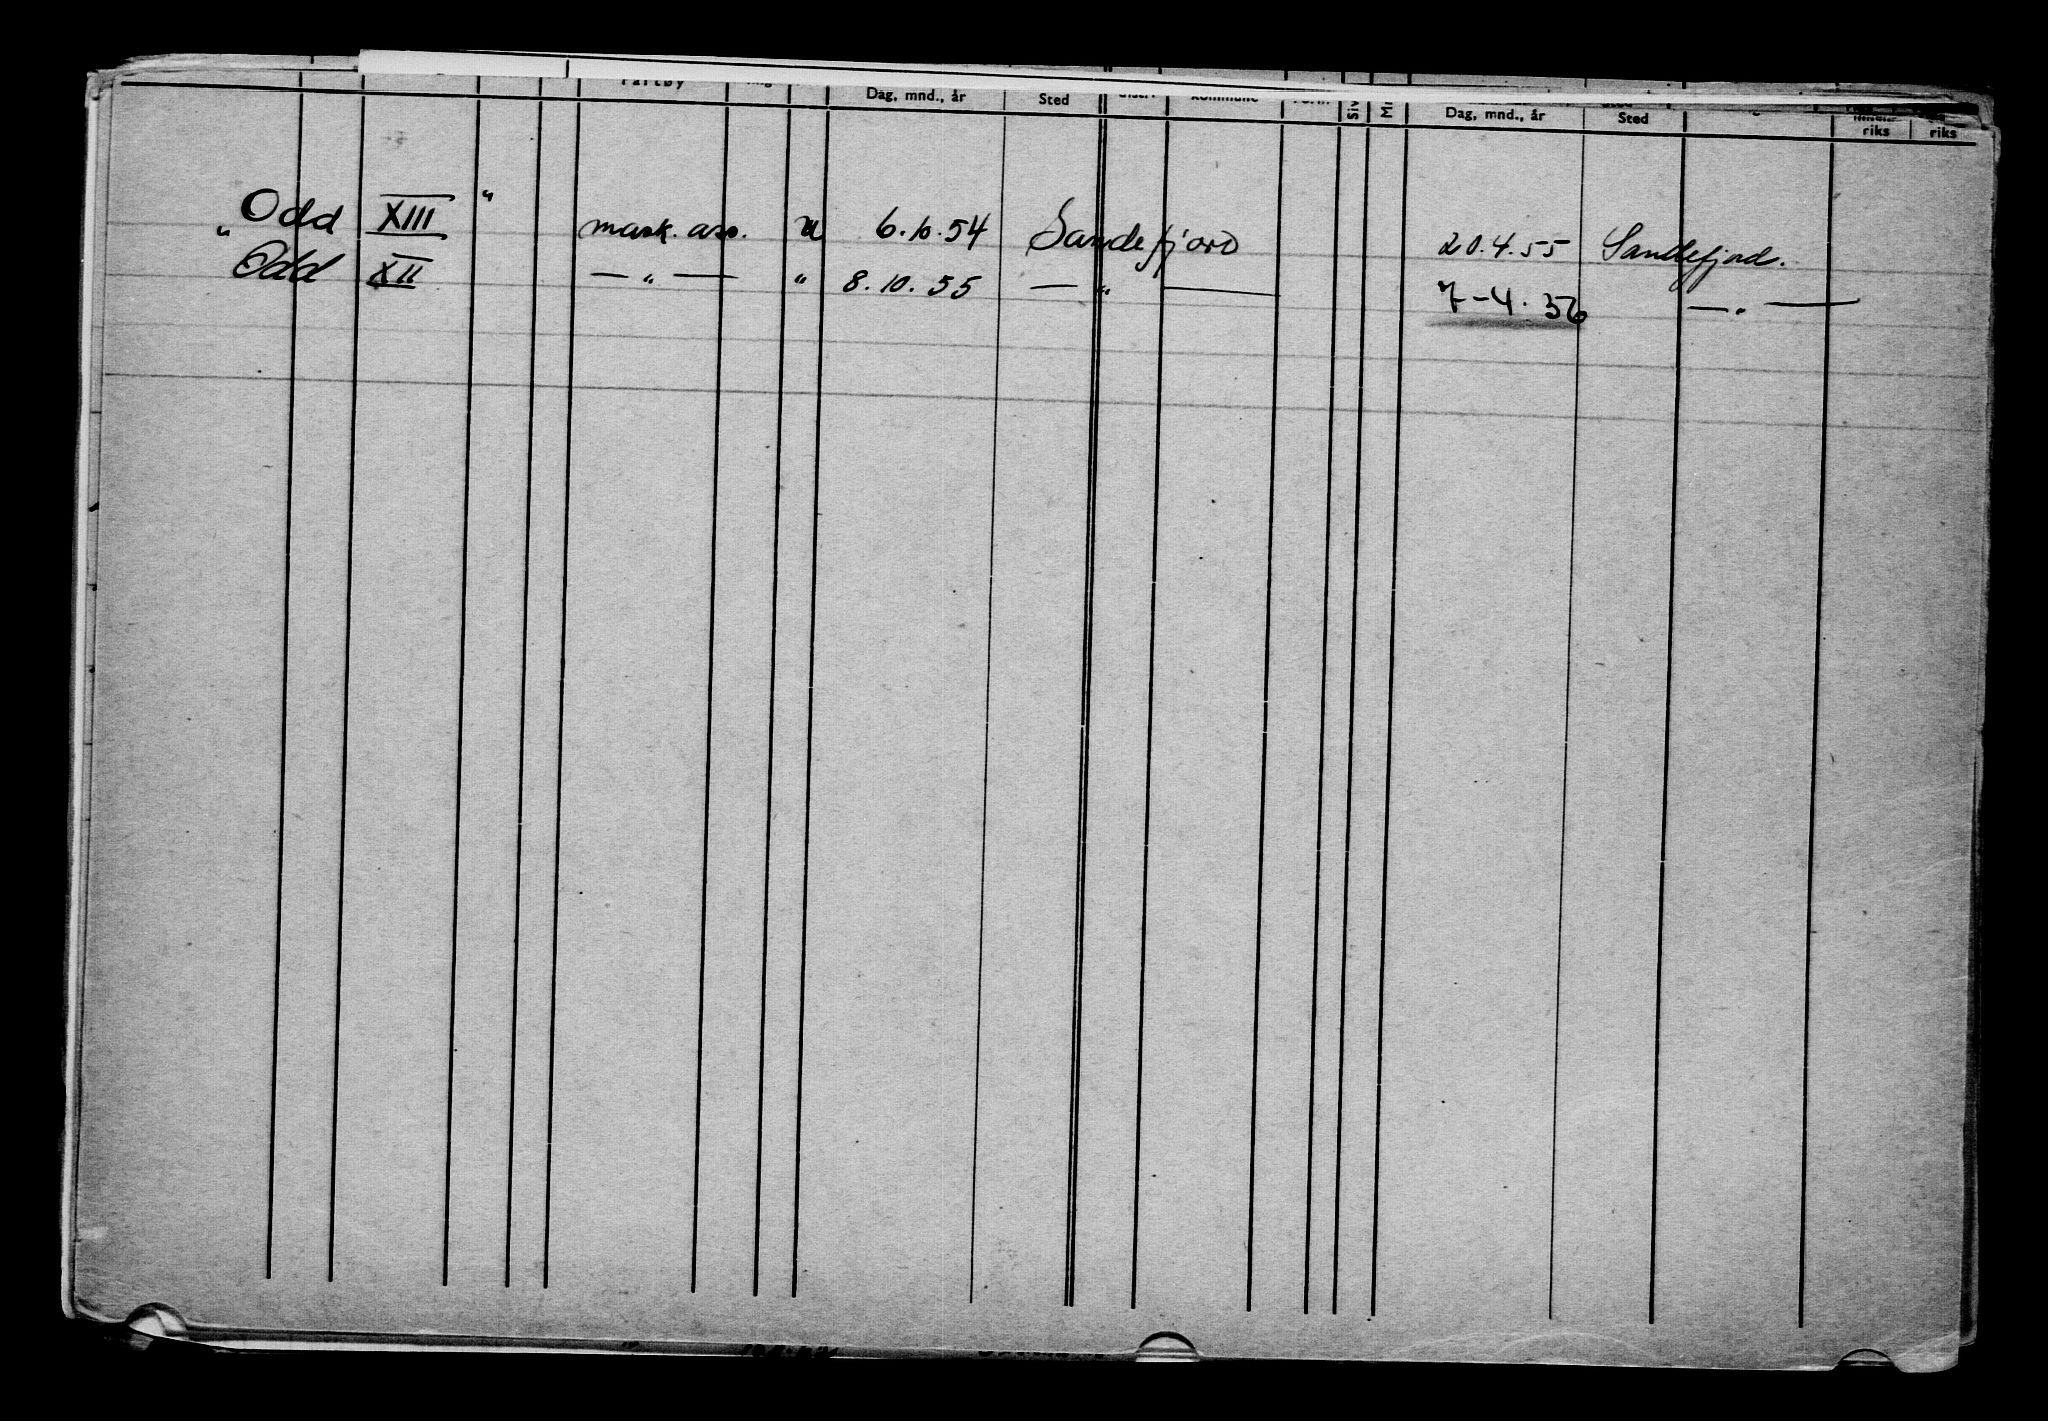 Fartøy Dag, mnd., år Sted kommune Siv Dag, mnd., år Sted riks riks
"Odd XIII" mask. ass. u 6.10.54 Sandefjord 20.4.55 Sandefjord.
"Odd XII — " — " 8.10.55 — " — 7-4.56 — " —